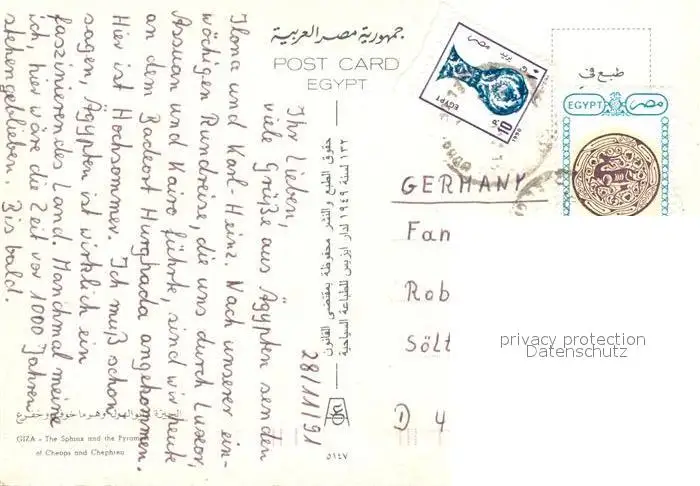 جمهورية مصر العربية
POST CARD
EGYPT
28/11/91
Ihr Lieben,
viele Grüße aus Ägypten senden
Ilona und Karl-Heinz. Nach unserer ein-
wöchigen Rundreise, die uns durch Luxor,
Assuan und Kairo führte, sind wir heute
an dem Badeort Hurghada angekommen.
Hier ist Hochsommer. Ich muß schon
sagen, Ägypten ist wirklich ein
faszinierendes Land. Manchmal meine
ich, hier wäre die Zeit vor 1000 Jahren
stehengeblieben. Bis bald.
حقوق الطبع والنشر محفوظة بمقتضى القانون
١٣٢ لسنة ١٩٤٩ لدار ايزيس للطباعة السياحية
٥١٤٧
الجيزة - أبو الهول وهرما خوفو وخفرع
GIZA - The Sphinx and the Pyram
of Cheops and Chephren
بريد مصر
EGYPT
P. 10
1990
طبع في
EGYPT مصر
GERMANY
Fan
Rob
Sölt
D 4
privacy protection
Datenschutz